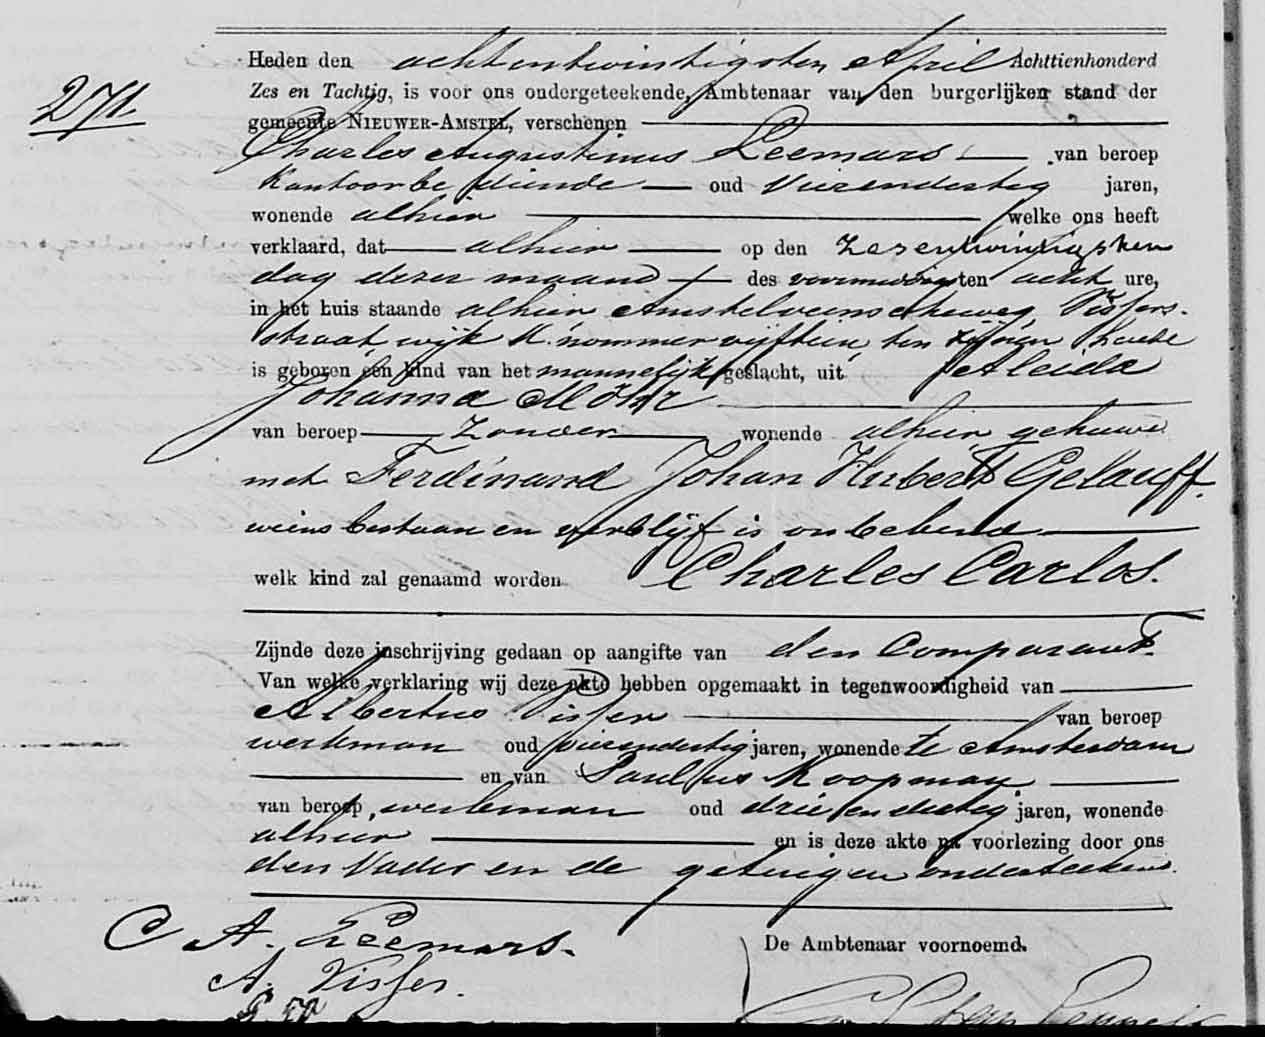 271.
Heden den achtentwintigsten April Achttienhonderd
Zes en Tachtig, is voor ons ondergeteekende, Ambtenaar van den burgerlijken stand der
gemeente NIEUWER-AMSTEL, verschenen
Charles Augustinus Leemars van beroep
Kantoorbediende oud vierendertig jaren,
wonende alhier welke ons heeft
verklaard, dat alhier op den zesentwintigsten
dag dezer maand des voormiddags ten acht ure,
in het huis staande alhier Amstelveenscheweg Vissers-
straat, wijk M. nommer vijftien ten zijnen huize
is geboren één kind van het mannelijk geslacht, uit Aleida
Johanna Möhr
van beroep zonder wonende alhier gehuwd
met Ferdinand Johan Hubert Gelauff.
wiens bestaan en verblijf is onbekend
welk kind zal genaamd worden Charles Carlos.
Zijnde deze inschrijving gedaan op aangifte van den Comparant.
Van welke verklaring wij deze akte hebben opgemaakt in tegenwoordigheid van
Albertus Visser van beroep
werkman oud vierendertig jaren, wonende te Amsterdam
en van Paulus Koopman
van beroep werkman oud drie en dertig jaren, wonende
alhier en is deze akte na voorlezing door ons
den Vader en de getuigen onderteekend.
C A. Leemars.
De Ambtenaar voornoemd.
A. Visser.